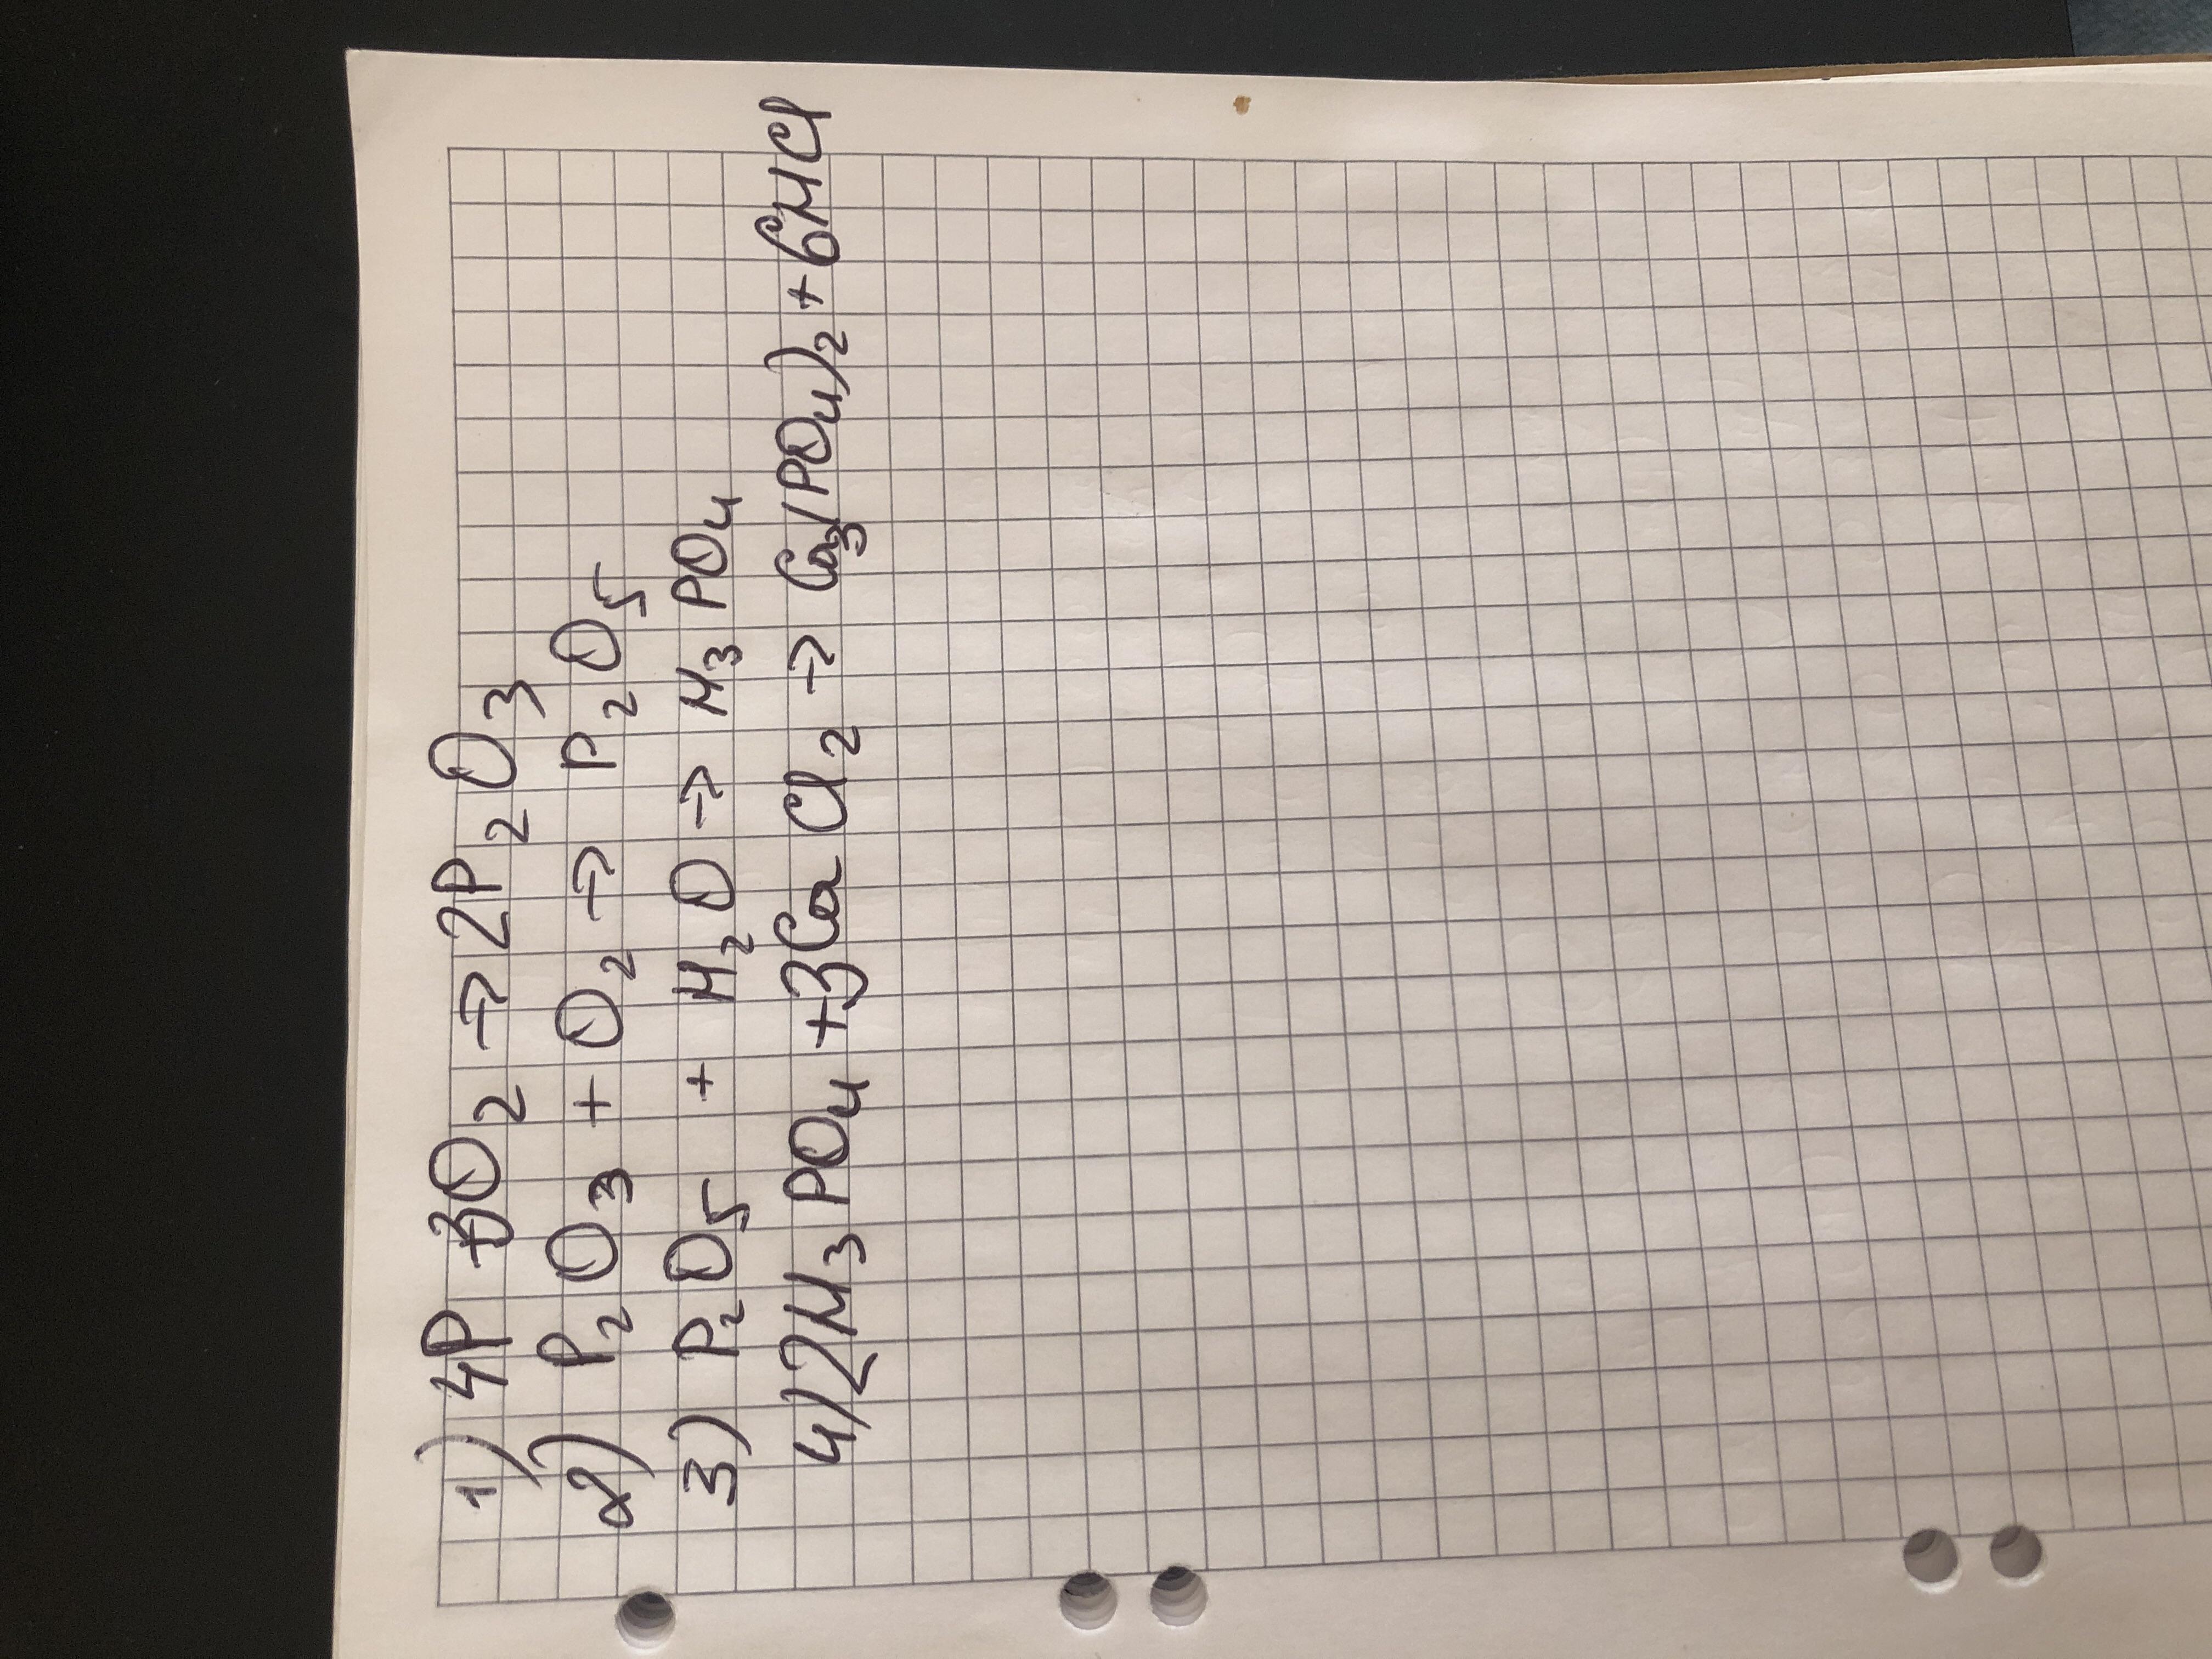 1) 4P + 3O₂ → 2P₂O₃
2) P₂O₃ + O₂ → P₂O₅
3) P₂O₅ + H₂O → H₃PO₄
4) 2H₃PO₄ + 3CaCl₂ → Ca₃(PO₄)₂ + 6HCl